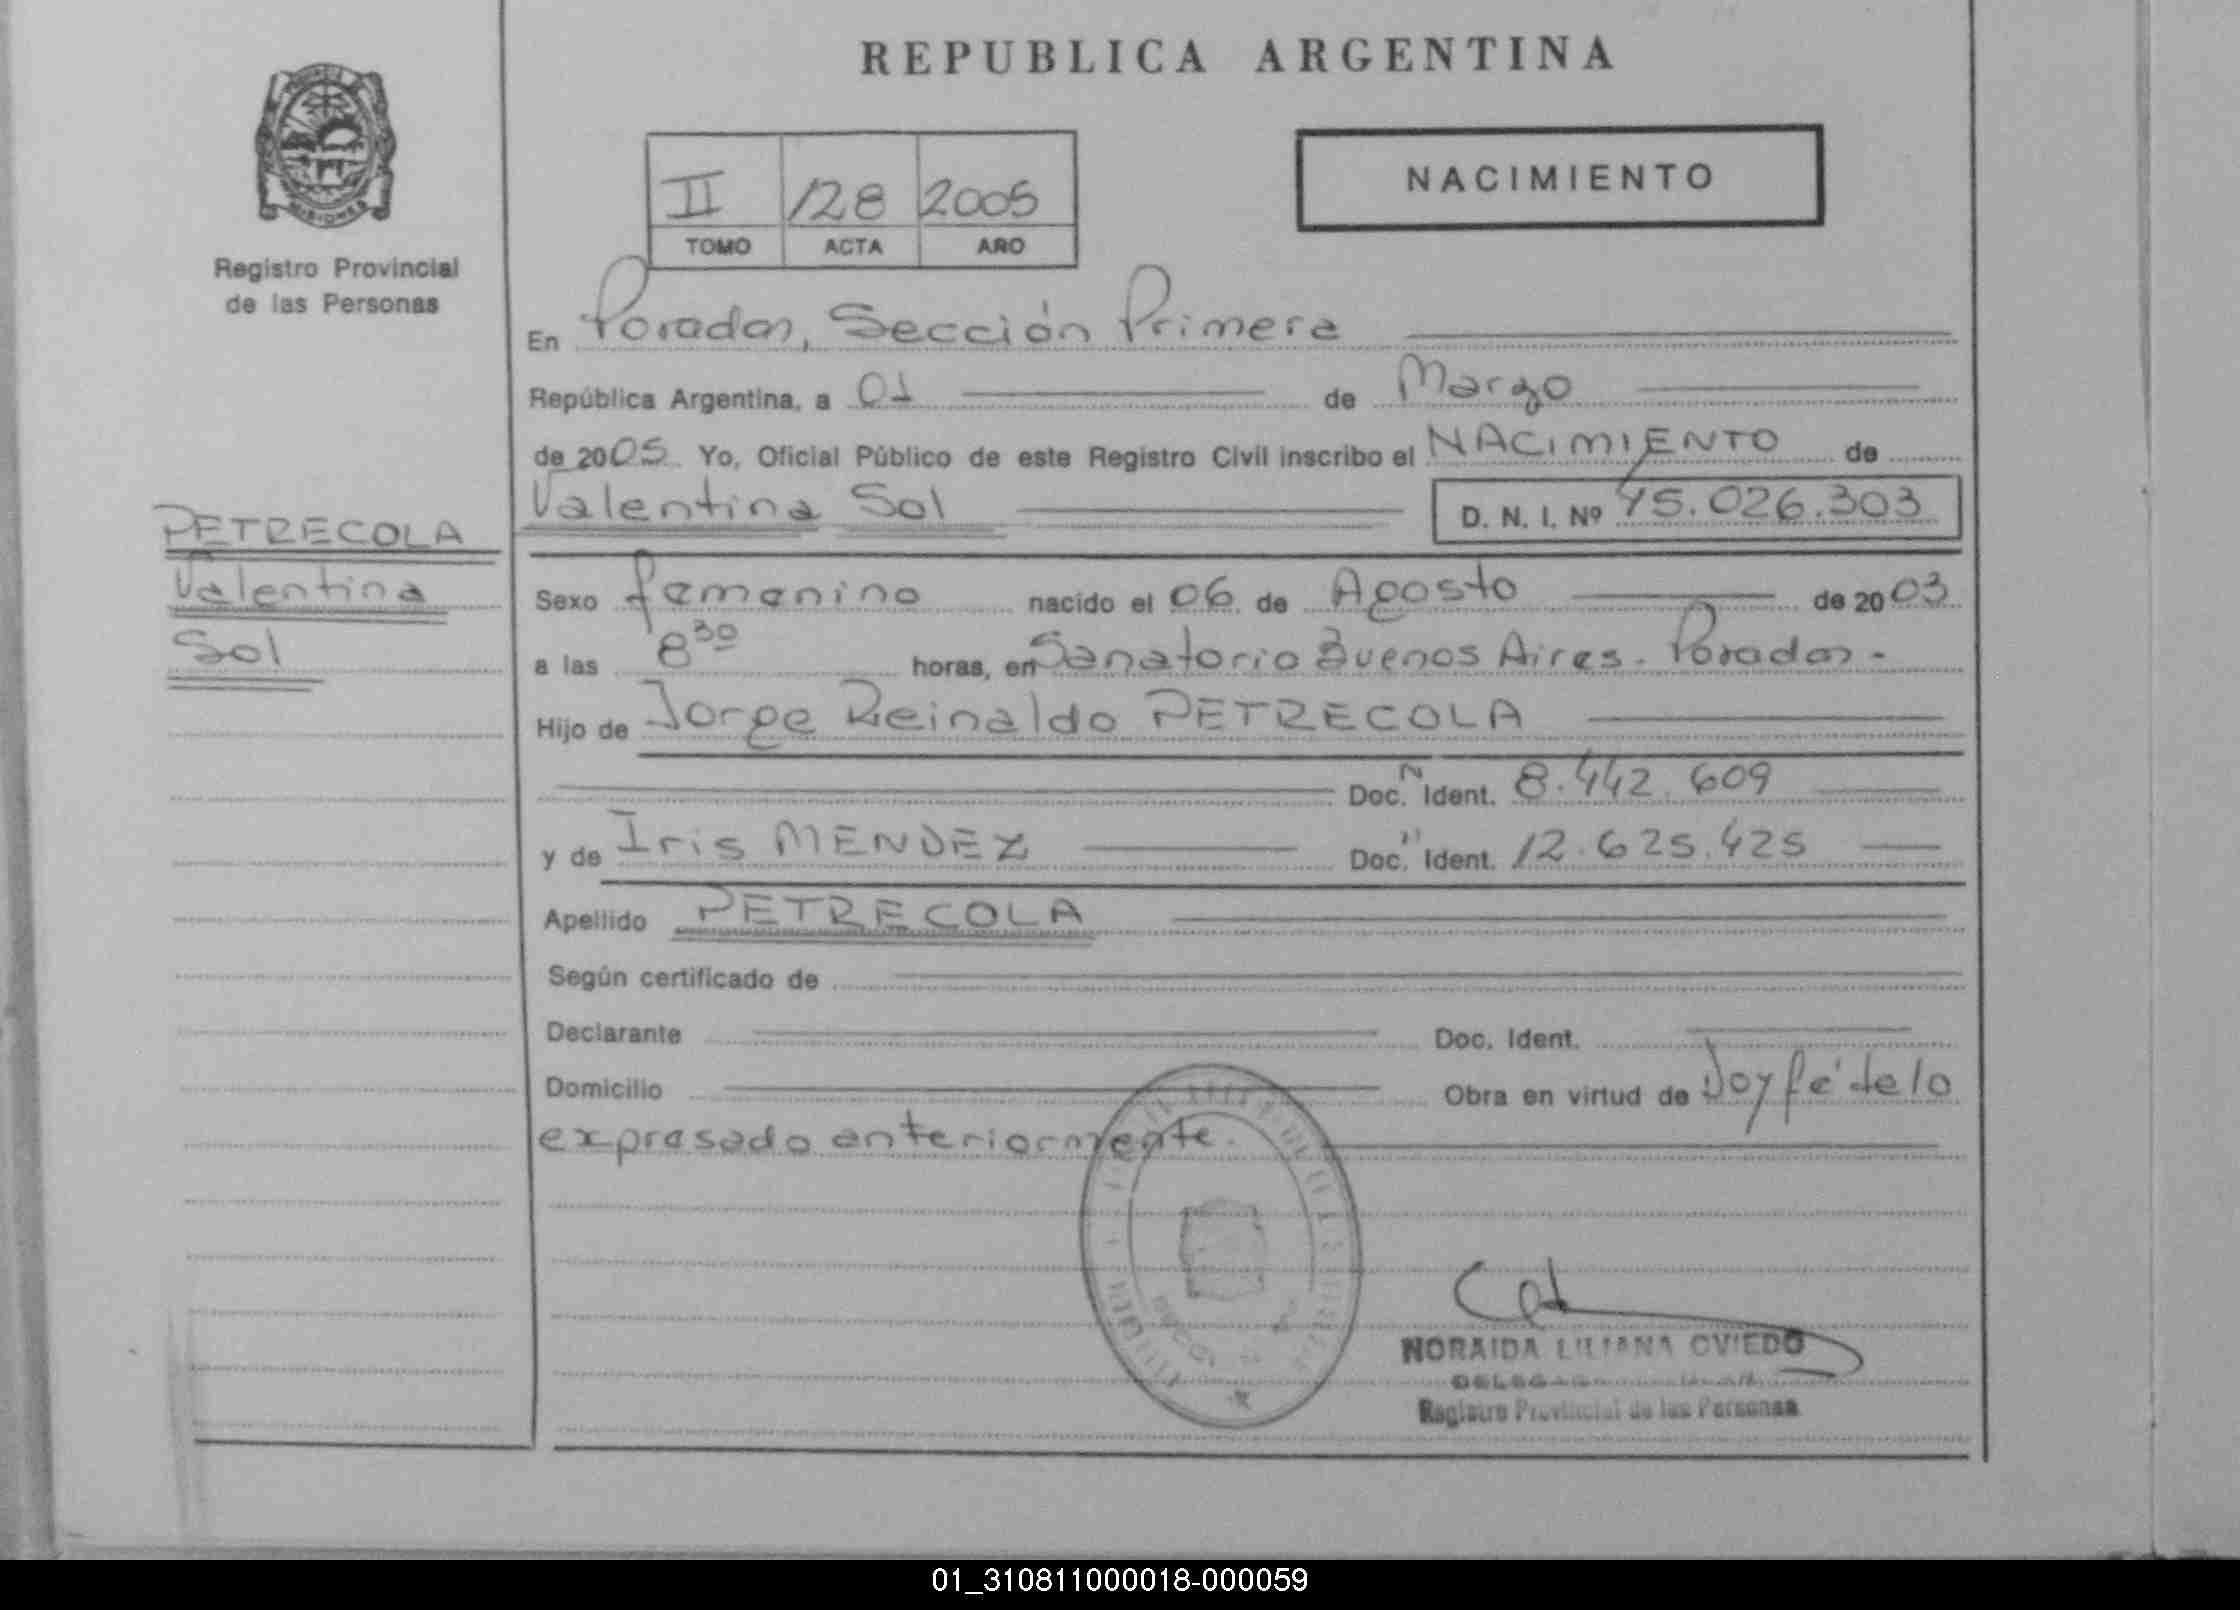 REPUBLICA ARGENTINA
MISIONES
Registro Provincial
de las Personas
II 128 2005
TOMO ACTA AÑO
NACIMIENTO
En Posadas, Sección Primera
República Argentina, a 01 de Marzo
de 2005 Yo, Oficial Público de este Registro Civil inscribo el NACIMIENTO de
Valentina Sol D. N. I. Nº 45.026.303
PETRECOLA
Valentina
Sol
Sexo femenino nacido el 06 de Agosto de 2003
a las 8 30 horas, en Sanatorio Buenos Aires. Posadas.-
Hijo de Jorge Reinaldo PETRECOLA
Doc. N Ident. 8.442.609
y de Iris MENDEZ Doc. " Ident. 12.625.425
Apellido PETRECOLA
Según certificado de
Declarante Doc. Ident.
Domicilio Obra en virtud de Doy fé de lo
expresado anteriormente.
NORAIDA LILIANA OVIEDO
Registro Provincial de las Personas
01_310811000018-000059